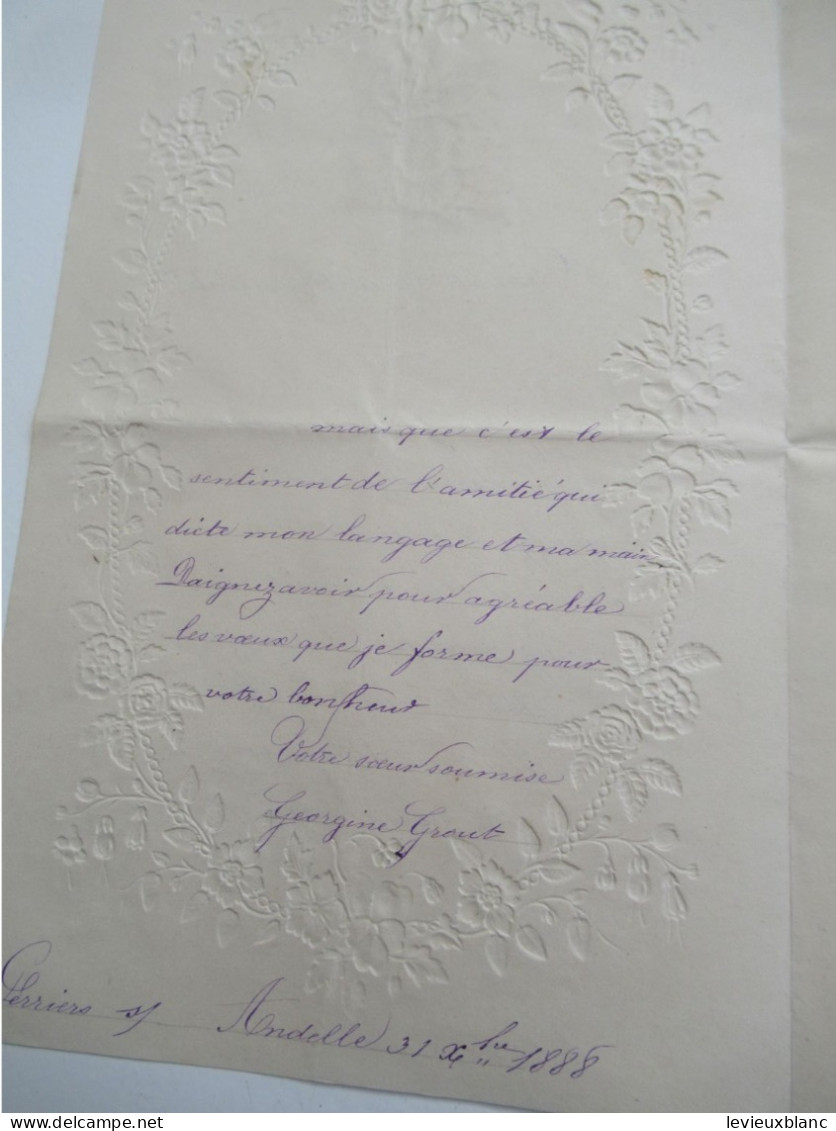 mais que c'est le
sentiment de l'amitié qui
dicte mon langage et ma main
Daignez avoir pour agréable
les vœux que je forme pour
votre bonheur
Votre sœur soumise
Georgine Grout
Perriers s/ Andelle 31 Xbre 1888
www.delcampe.net
levieuxblanc